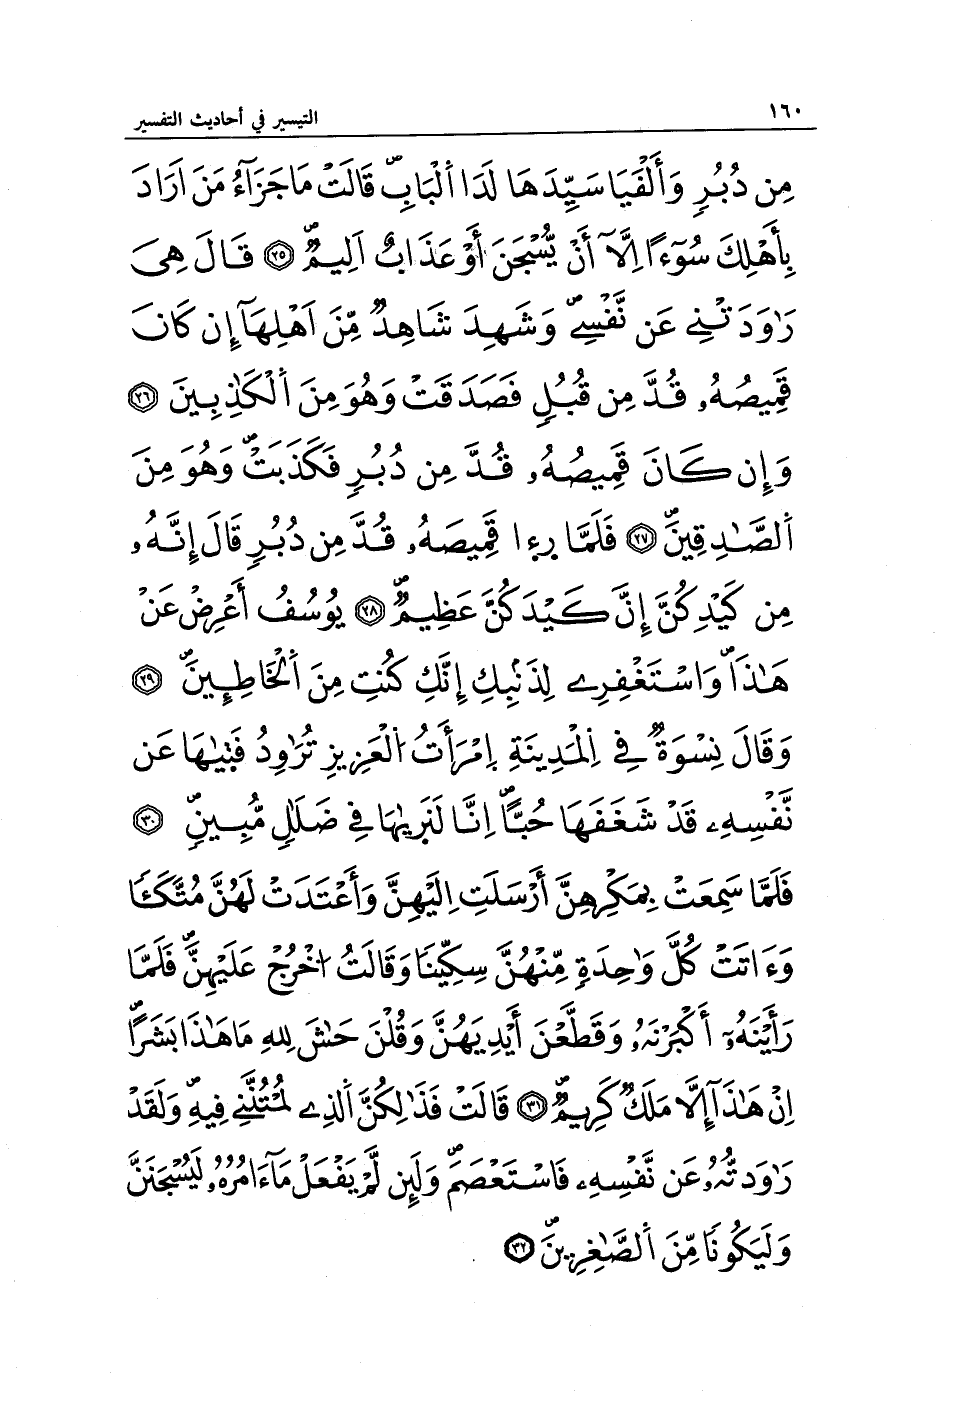 ١٦٠
التيسير في أحاديث التفسير
مِن دُبُرٍ وَأَلْفَيَا سَيِّدَهَا لَدَا اَلْبَابِ قَالَتْ مَا جَزَآءُ مَنَ اَرَادَ
بِأَهْلِكَ سُوٓءًا اِلَّآ أَنْ يُّسْجَنَ أَوْ عَذَابٌ اَلِيمٌ ٢٥ قَالَ هِىَ
رَٰوَدَتْنِے عَن نَّفْسِے وَشَهِدَ شَاهِدٌ مِّنَ اَهْلِهَآ إِن كَانَ
قَمِيصُهُۥ قُدَّ مِن قُبُلٍ فَصَدَقَتْ وَهُوَ مِنَ اَلْكَٰذِبِينَ ٢٦
وَإِن كَانَ قَمِيصُهُۥ قُدَّ مِن دُبُرٍ فَكَذَبَتْ وَهُوَ مِنَ
اَلصَّٰدِقِينَ ٢٧ فَلَمَّا رِءِا قَمِيصَهُۥ قُدَّ مِن دُبُرٍ قَالَ إِنَّهُۥ
مِن كَيْدِكُنَّ إِنَّ كَيْدَكُنَّ عَظِيمٌ ٢٨ يُوسُفُ أَعْرِضْ عَنْ
هَٰذَا وَاسْتَغْفِرِے لِذَنۢبِكِ إِنَّكِ كُنتِ مِنَ اَلْخَاطِـِٕينَ ٢٩
وَقَالَ نِسْوَةٌ فِے اِلْمَدِينَةِ اِمْرَأَتُ اُلْعَزِيزِ تُرَٰوِدُ فَتَىٰهَا عَن
نَّفْسِهِۦ قَدْ شَغَفَهَا حُبًّا اِنَّا لَنَرَىٰهَا فِے ضَلَٰلٍ مُّبِينٍ ٣٠
فَلَمَّا سَمِعَتْ بِمَكْرِهِنَّ أَرْسَلَتِ اِلَيْهِنَّ وَأَعْتَدَتْ لَهُنَّ مُتَّكَـًٔا
وَءَاتَتْ كُلَّ وَٰحِدَةٍ مِّنْهُنَّ سِكِّينًا وَقَالَتُ اُخْرُجْ عَلَيْهِنَّ فَلَمَّا
رَأَيْنَهُۥٓ أَكْبَرْنَهُۥ وَقَطَّعْنَ أَيْدِيَهُنَّ وَقُلْنَ حَٰشَ لِلهِ مَا هَٰذَا بَشَرًا
اِنْ هَٰذَآ إِلَّا مَلَكٌ كَرِيمٌ ٣١ قَالَتْ فَذَٰلِكُنَّ اَلذِے لُمْتُنَّنِے فِيهِ وَلَقَدْ
رَٰوَدتُّهُۥ عَن نَّفْسِهِۦ فَاسْتَعْصَمَ وَلَئِن لَّمْ يَفْعَلْ مَآ ءَامُرُهُۥ لَيُسْجَنَنَّ
وَلَيَكُونًا مِّنَ اَلصَّٰغِرِينَ ٣٢